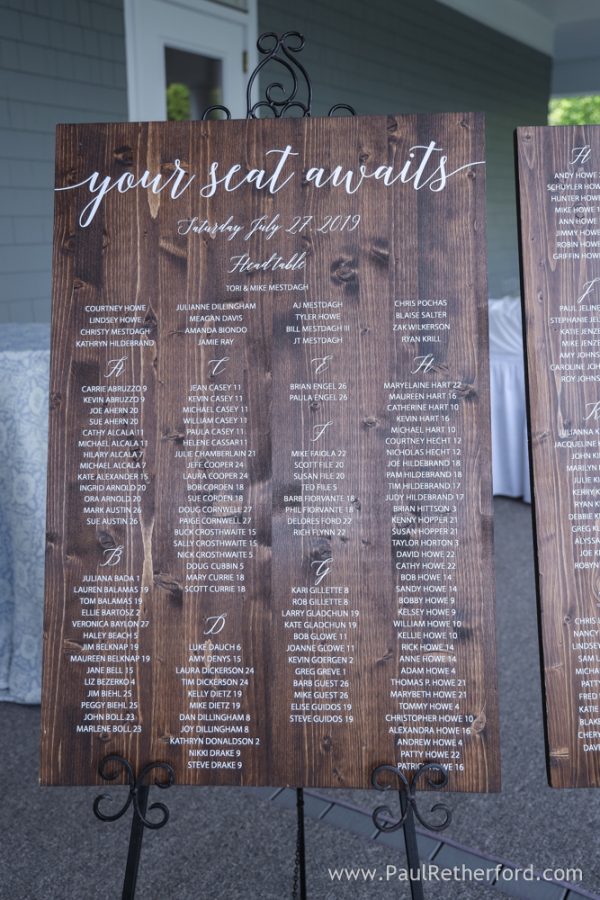 your seat awaits
Saturday July 27, 2019
Head table
TORI & MIKE MESTDAGH
COURTNEY HOWE
LINDSEY HOWE
CHRISTY MESTDAGH
KATHRYN HILDEBRAND
JULIANNE DILLINGHAM
MEAGAN DAVIS
AMANDA BIONDO
JAMIE RAY
AJ MESTDAGH
TYLER HOWE
BILL MESTDAGH III
JT MESTDAGH
CHRIS POCHAS
BLAISE SALTER
ZAK WILKERSON
RYAN KRILL
A
CARRIE ABRUZZO 9
KEVIN ABRUZZO 9
JOE AHERN 20
SUE AHERN 20
CATHY ALCALA 11
MICHAEL ALCALA 11
HILARY ALCALA 7
MICHAEL ALCALA 7
KATE ALEXANDER 15
INGRID ARNOLD 20
ORA ARNOLD 20
MARK AUSTIN 26
SUE AUSTIN 26
B
JULIANA BADA 1
LAUREN BALAMAS 19
TOM BALAMAS 19
ELLIE BARTOSZ 2
VERONICA BAYLON 27
HALEY BEACH 5
JIM BELKNAP 19
MAUREEN BELKNAP 19
JANE BELL 15
LIZ BIERKO 4
JIM BIEHL 25
PEGGY BIEHL 25
JOHN BOLL 23
MARLENE BOLL 23
C
JEAN CASEY 11
KEVIN CASEY 11
MICHAEL CASEY 11
WILLIAM CASEY 11
PAULA CASEY 11
HELENE CASSAR 11
JULIE CHAMBERLAIN 21
JEFF COOPER 24
LAURA COOPER 24
BOB CORDEN 18
SUE CORDEN 18
DOUG CORNWELL 27
PAIGE CORNWELL 27
BUCK CROSTHWAITE 15
SALLY CROSTHWAITE 15
NICK CROSTHWAITE 5
DOUG CUBBIN 5
MARY CURRIE 18
SCOTT CURRIE 18
D
LUKE DAUCH 6
AMY DENYS 15
LAURA DICKERSON 24
TIM DICKERSON 24
KELLY DIETZ 19
MIKE DIETZ 19
DAN DILLINGHAM 8
JOY DILLINGHAM 8
KATHRYN DONALDSON 2
NIKKI DRAKE 9
STEVE DRAKE 9
E
BRIAN ENGEL 26
PAULA ENGEL 26
F
MIKE FAIGLA 22
SCOTT FILE 20
SUSAN FILE 20
TED FILE 5
BARB FIORVANTE 18
PHIL FIORVANTE 18
DELORES FORD 22
RICH FLYNN 22
G
KARI GILLETTE 8
ROB GILLETTE 8
LARRY GLADCHUN 19
KATE GLADCHUN 19
BOB GLOWE 11
JOANNE GLOWE 11
KEVIN GOERGEN 2
GREG GREVE 1
BARB GUEST 26
MIKE GUEST 26
ELISE GUIDOS 19
STEVE GUIDOS 19
H
MARYELAINE HART 22
MAUREEN HART 16
CATHERINE HART 10
KEVIN HART 16
MICHAEL HART 10
COURTNEY HECHT 12
NICHOLAS HECHT 12
JOE HILDEBRAND 18
PAM HILDEBRAND 18
TIM HILDEBRAND 17
JUDY HILDEBRAND 17
BRIAN HITTSON 3
KENNY HOPPER 21
SUSAN HOPPER 21
TAYLOR HORTON 3
DAVID HOWE 22
CATHY HOWE 22
BOB HOWE 14
SANDY HOWE 14
BOBBY HOWE 9
KELSEY HOWE 9
WILLIAM HOWE 10
KELLIE HOWE 10
RICK HOWE 14
ANNE HOWE 14
ADAM HOWE 4
THOMAS P. HOWE 21
MARYBETH HOWE 21
TOMMY HOWE 4
CHRISTOPHER HOWE 10
ALEXANDRA HOWE 16
ANDREW HOWE 4
PATTY HOWE 22
PATRICK HOWE 16
H
ANDY HOWE
SCHUYLER HOWE
HUNTER HOWE
MIKE HOWE
ANN HOWE
JIMMY HOWE
ROBIN HOWE
GRIFFIN HOWE
J
PAUL JELINE
STEPHANIE JEL
KATIE JENZE
MIKE JENZE
AMY JOHNS
CAROLINE JOH
ROY JOHNS
K
www.PaulRetherford.com